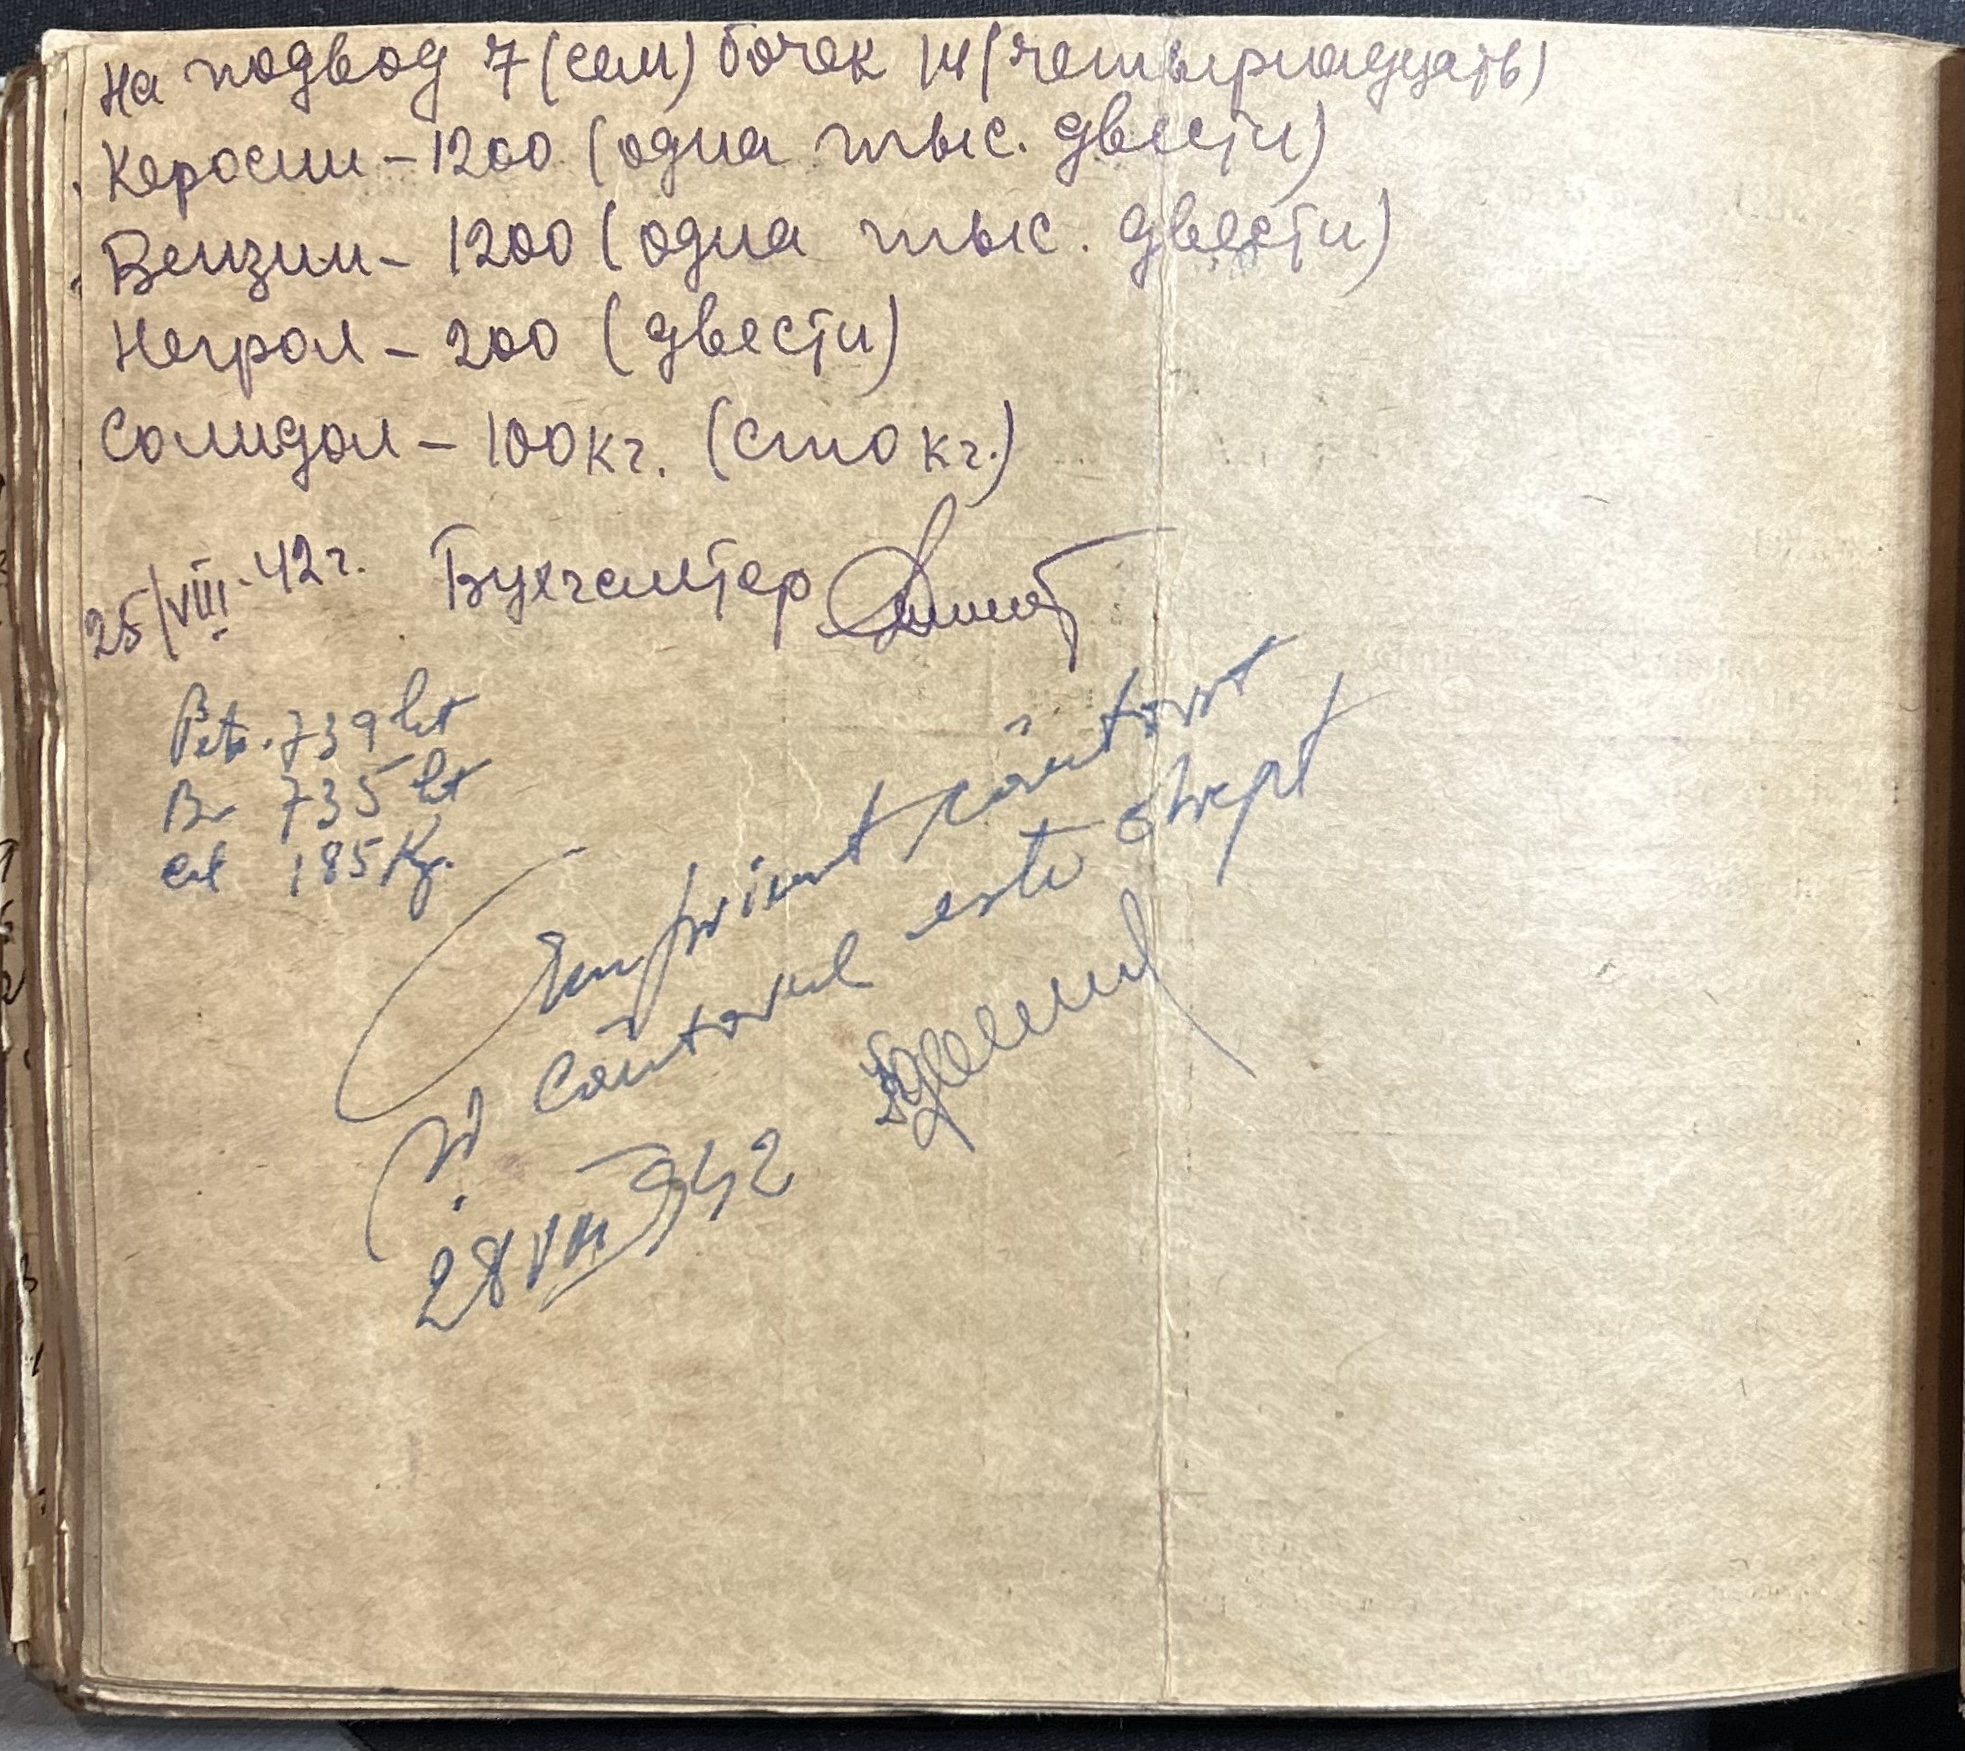 На подвод 7 (сем) бочек 14 (четырнадцать)
Керосин – 1200 (одна тыс. двести)
Бензин – 1200 (одна тыс. двести)
Негрол – 200 (двести)
Солидол – 100 кг. (сто кг.)
25/VIII-42 г. Бухгалтер
Petr. 739 lit
Bz 735 lt
ul 185 Kg.
Am primit cântarit
și Cântarul este drept
28 VIII 942